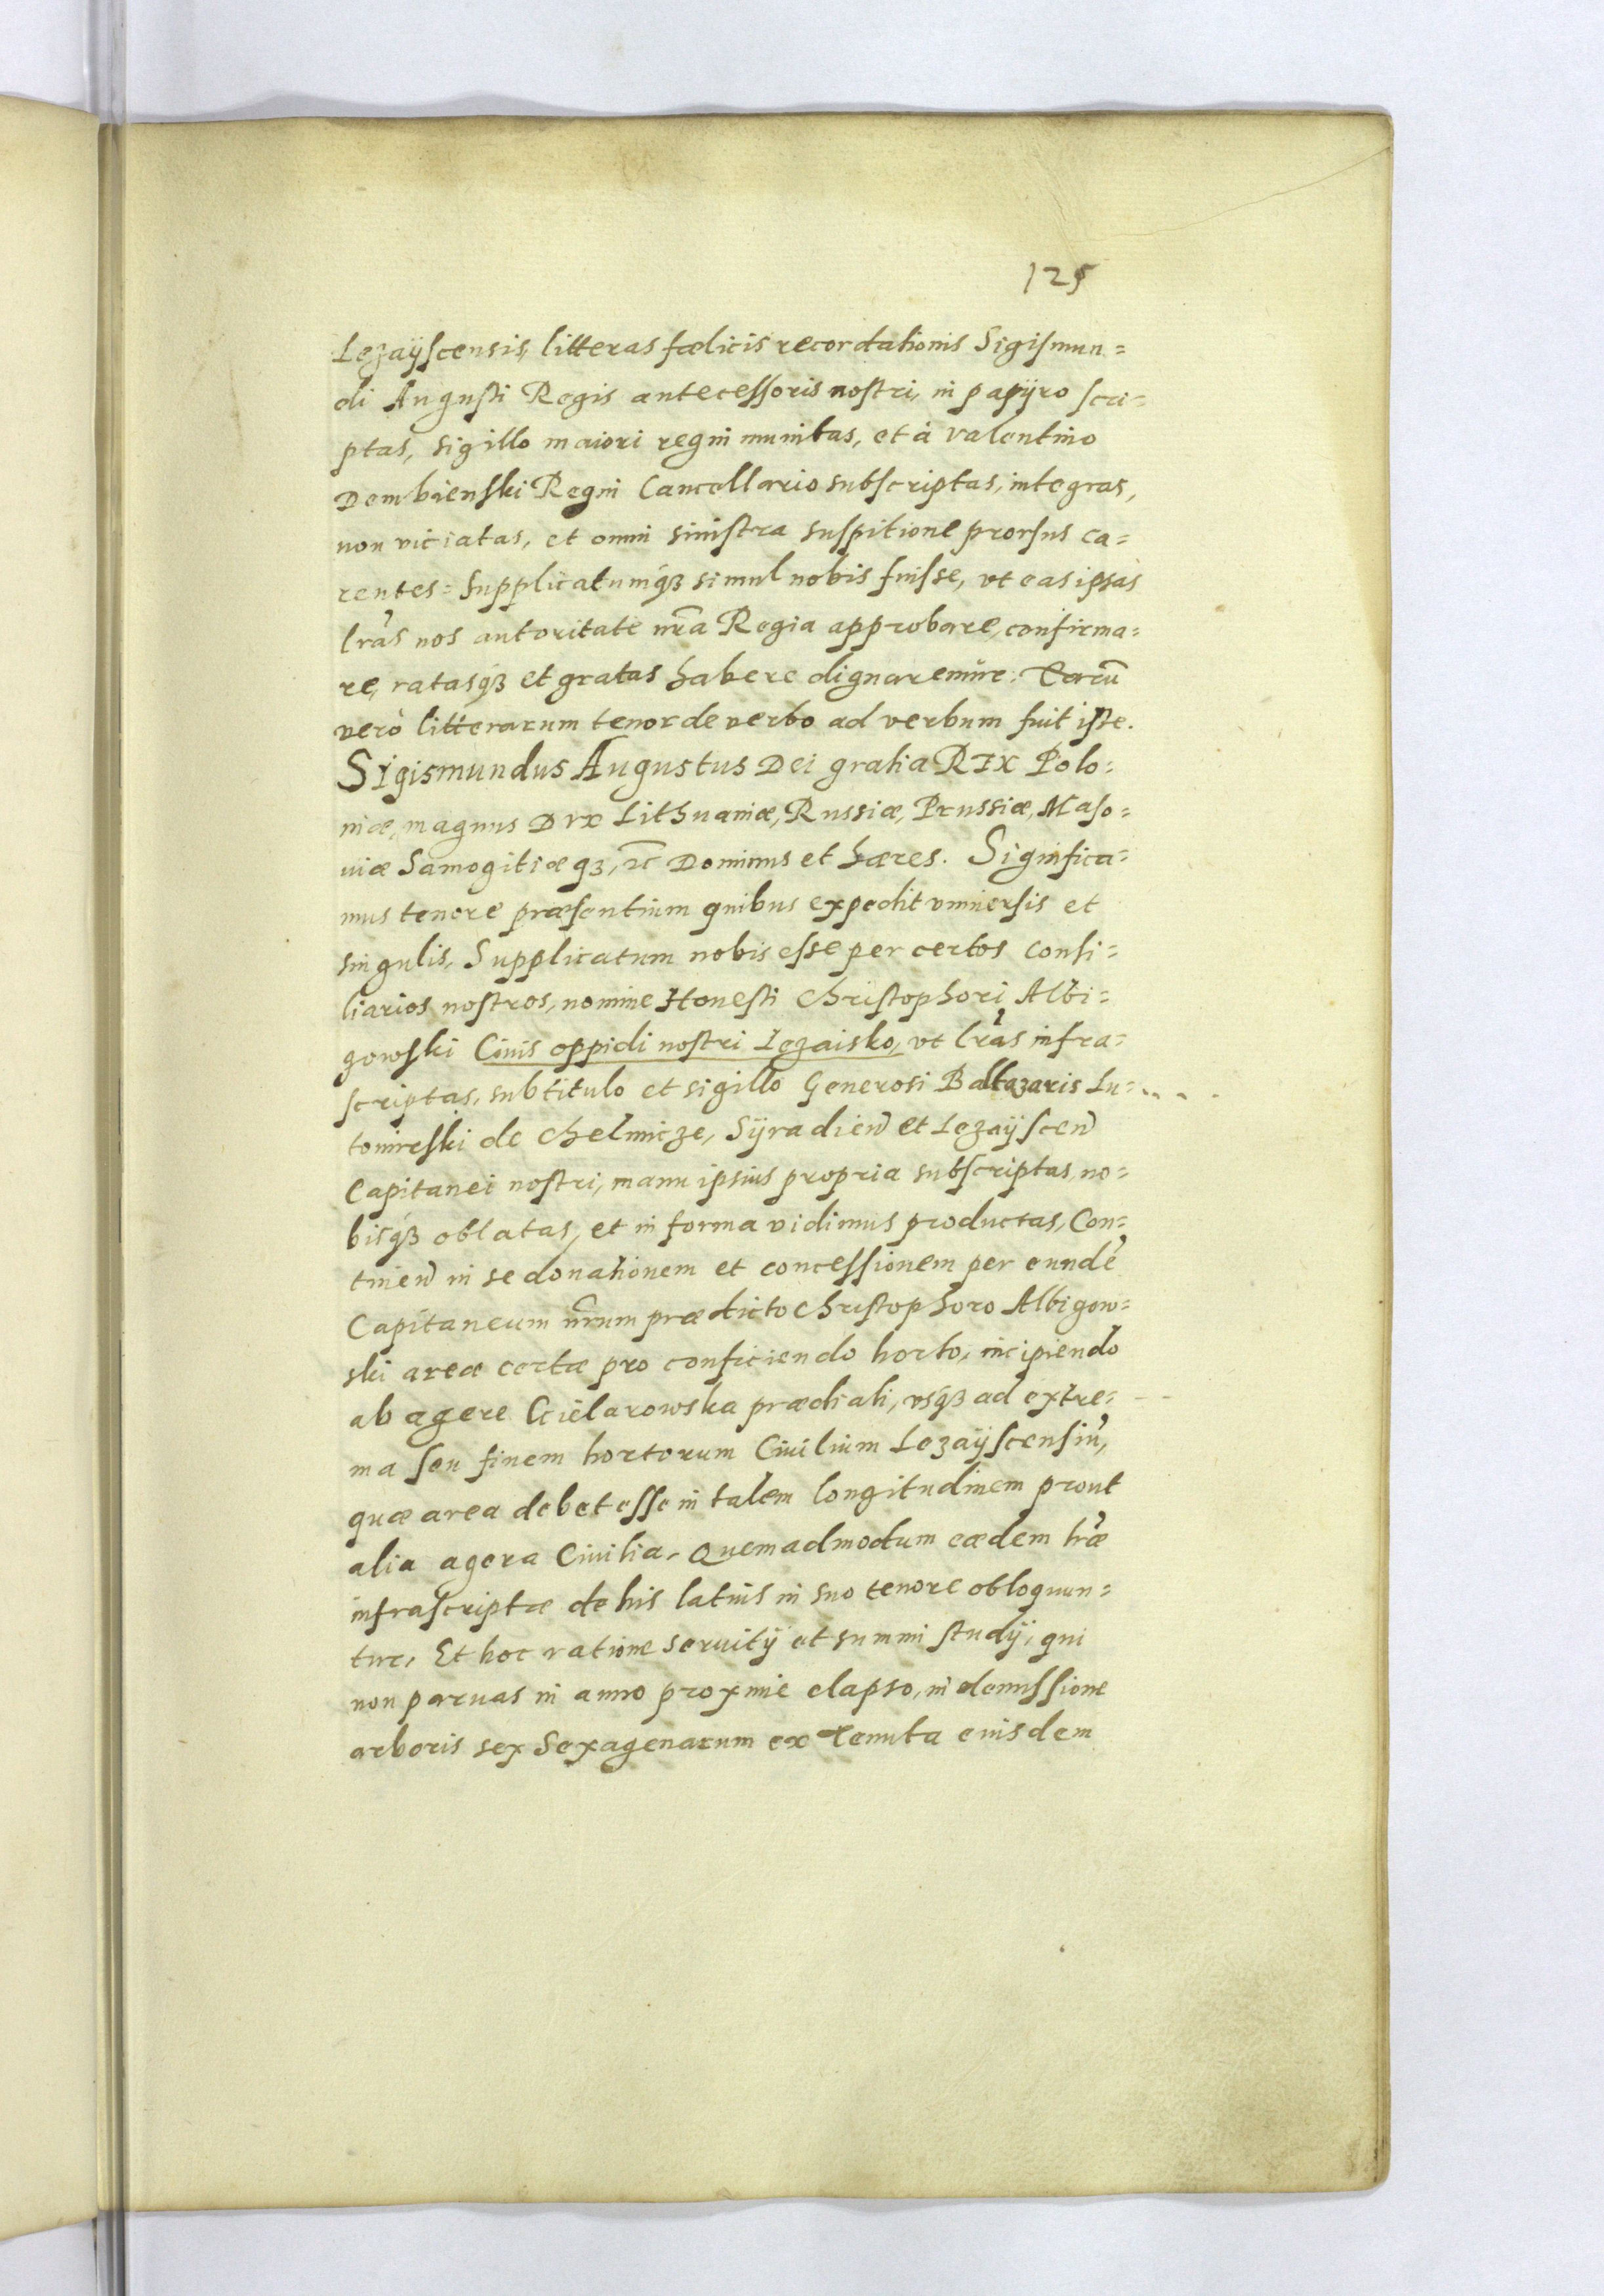 125
Lezaÿscensis, litteras fœlicis recordationis Sigismun=
di Augusti Regis antecessoris nostri, in papÿro scri=
ptas, sigillo maiori regni munitas, et à Valentino
Dembienski Regni Cancellario subscriptas, integras,
non viciatas, et omni sinistra suspitione prorsus ca=
rentes: Supplicatumq́ꝫ simul nobis fuisse, vt eas ipsas
lr̃as nos autoritate nr̃a Regia approbare, confirma=
re, ratasq́ꝫ et gratas habere dignaremur: Earũ
verò litterarum tenor de verbo ad verbum fuit iste.
Sigismundus Augustus Dei gratia REX Polo=
niæ, magnus Dvx Lithuaniæ, Russiæ, Prussiæ, Maso=
uiæ Samogitiæqꝫ, ꝛc̃ Dominus et hæres. Significa=
mus tenore præsentium quibus expedit vniuersis et
singulis, Supplicatum nobis esse per certos consi=
liarios nostros, nomine Honesti Christophori Albi=
gowski Ciuis oppidi nostri Lezaisko, vt lr̃as infra=
scriptas, sub titulo et sigillo Generosi Baltazaris Lu=
tomirski de Chelmicze, Sÿradien̄ et Lezaÿscen̄
Capitanei nostri, manu ipsius propria subscriptas, no=
bisq́ꝫ oblatas, et in forma vidimus productas, Con=
tinen̄ in se donationem et concessionem per eundẽ
Capitaneum nr̃um prædicto Christophoro Albigow=
ski areæ certæ pro conficiendo horto, incipiendo
ab agere Cielarowska prædiali, vsq́ꝫ ad extre=
ma seu finem hortorum Ciuilium Lezaÿscensiũ,
quæ area debet esse in talem longitudinem prout
alia agera Ciuilia, Quemadmodum eædem lr̃æ
infrascriptæ de his latius in suo tenore obloquun=
tur, Et hoc ratione seruitÿ et summi studÿ, qui
non paruas in anno proxime elapso, in demissione
arboris sex Sexagenarum ex Tenuta eiusdem